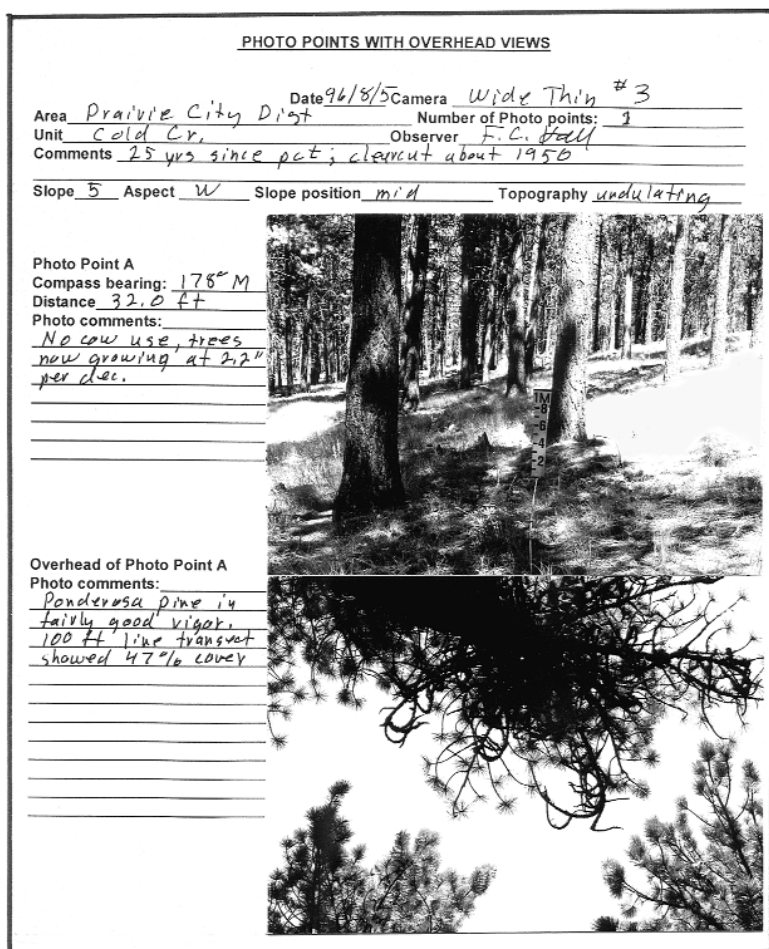 PHOTO POINTS WITH OVERHEAD VIEWS
Date 96/8/5 Camera Wide Thin #3
Area Prairie City Dist Number of Photo points: 1
Unit Cold Cr. Observer F.C. Hall
Comments 25 yrs since pct; clearcut about 1950
Slope 5 Aspect W Slope position mid Topography undulating
Photo Point A
Compass bearing: 178° M
Distance 32.0 ft
Photo comments:
No cow use, trees
now growing at 2.2"
per dec.
1M
-8
-6
-4
-2
Overhead of Photo Point A
Photo comments:
Ponderosa pine in
fairly good vigor.
100 ft line transect
showed 47% cover